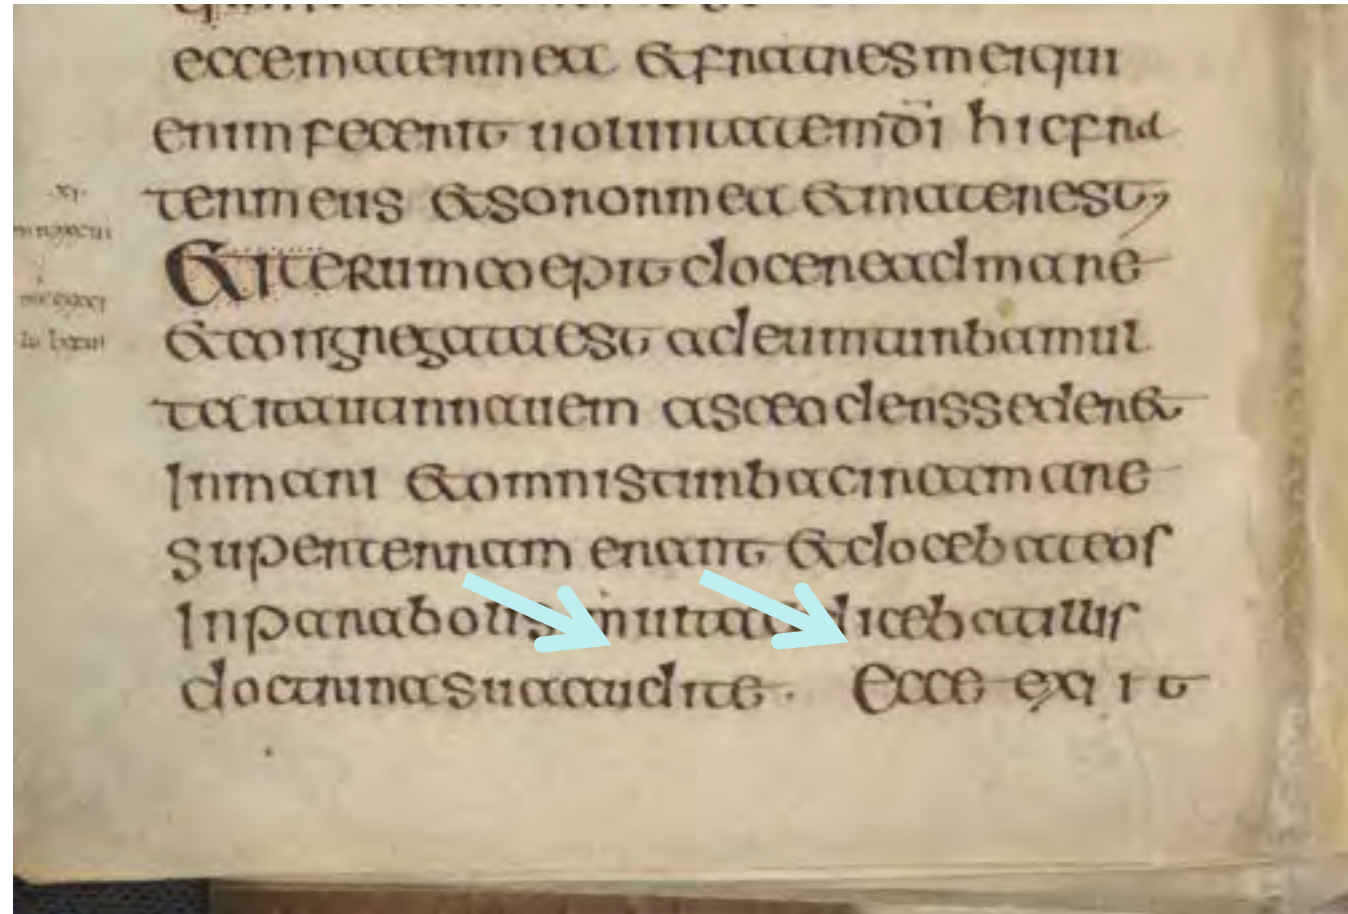 ecce mater mea & fratres mei qui
enim fecerit uoluntatem dī hic fra
ter meus & soror mea & mater est,
.xi.
& iterum coepit docere ad mare
& congregata est ad eum turba mul
ta ita ut in nauem ascendens seder&
In mari & omnis turba circa mare
super terram erant & docebat eos
In parabolis multa dicebat illis
doctrina sua audite. Ecce exiit